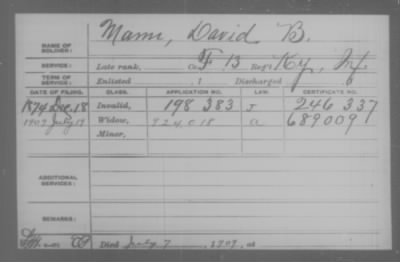 Mann, David B.
NAME OF SOLDIER:
SERVICE: Late rank, Co. F 13 Reg't Ky. Inf.
TERM OF SERVICE: Enlisted , 1 Discharged , 1
DATE OF FILING. CLASS. APPLICATION NO. LAW. CERTIFICATE NO.
1874 Dec. 18 Invalid, 198 383 J 246 337
1909 July 19 Widow, 924018 a 689009
Minor,
ADDITIONAL SERVICES:
REMARKS:
Died July 7, 1909, at